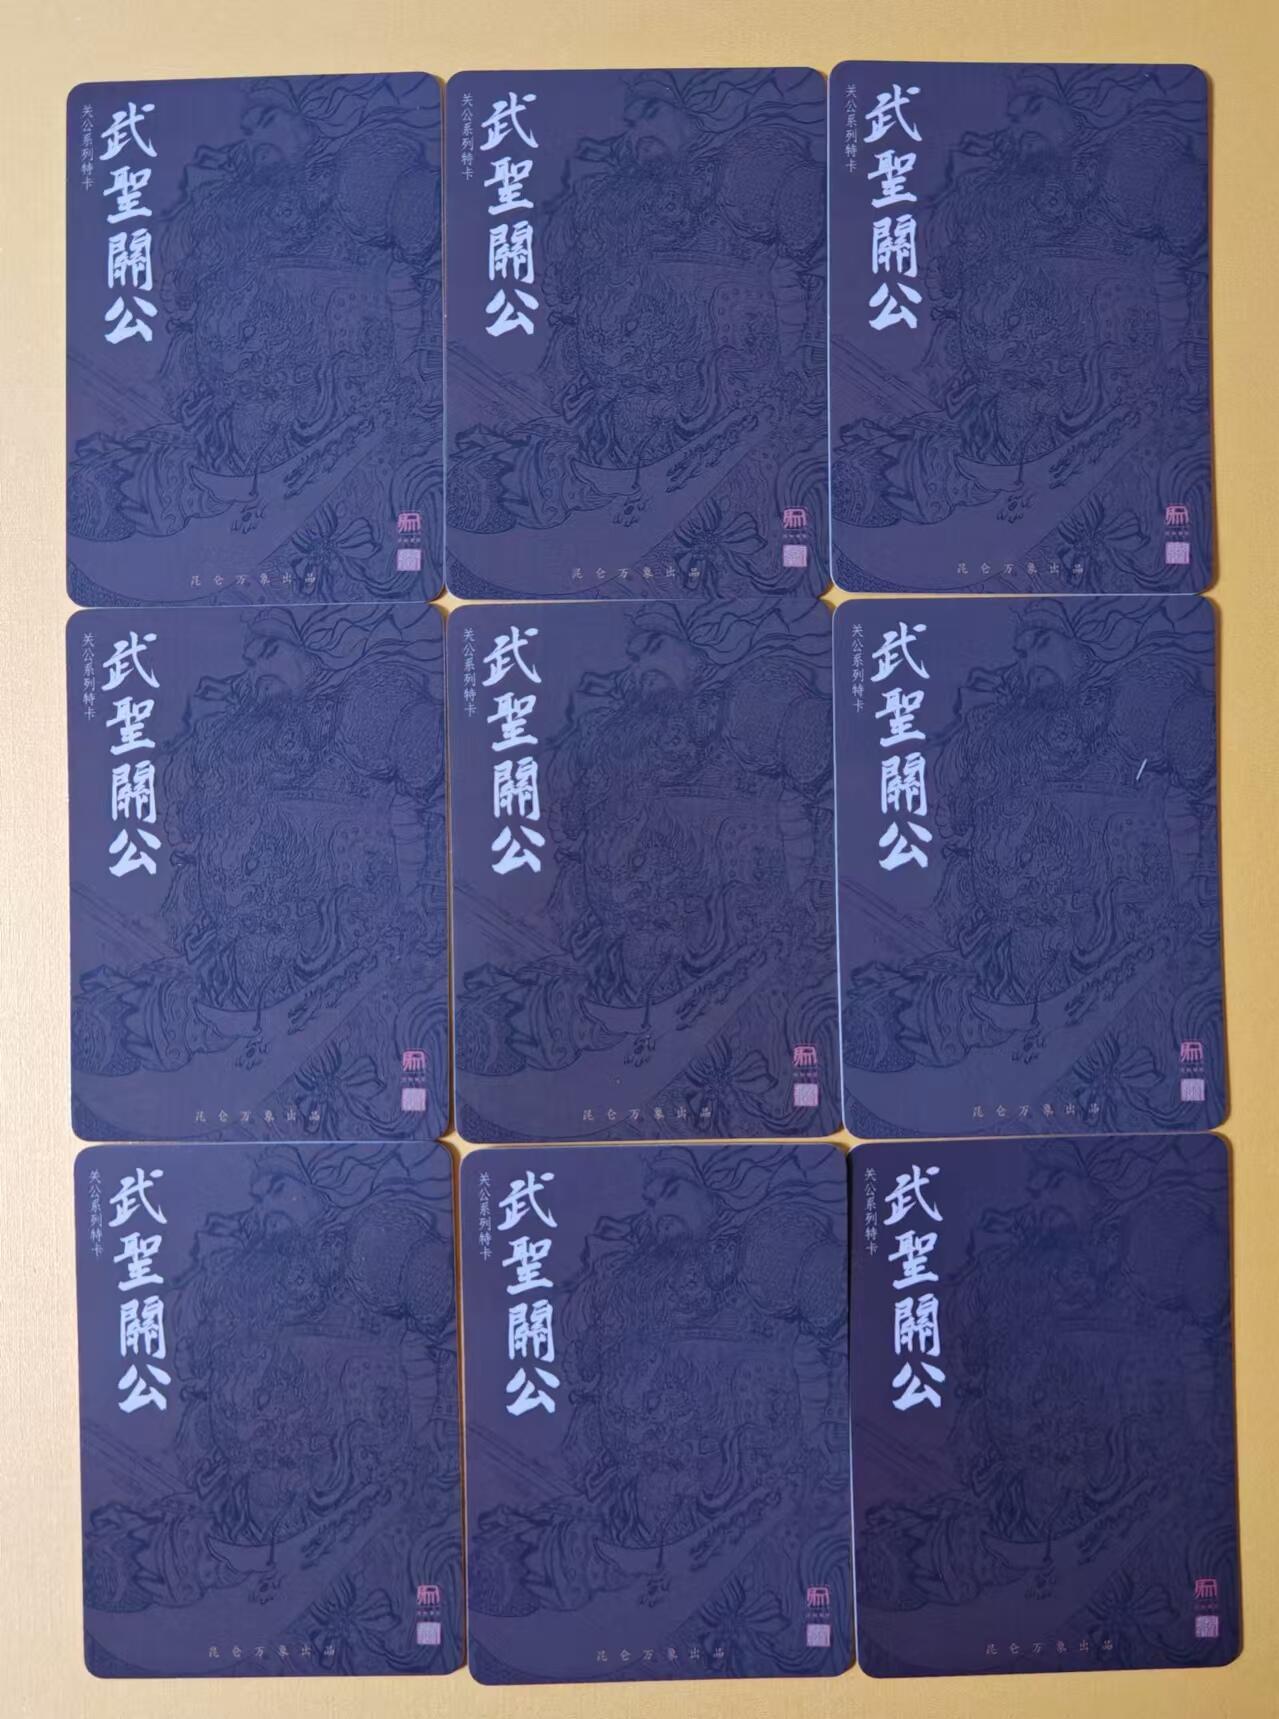 关公系列特卡
武聖關公
昆仑万象出品
关公系列特卡
武聖關公
昆仑万象出品
关公系列特卡
武聖關公
昆仑万象出品
关公系列特卡
武聖關公
昆仑万象出品
关公系列特卡
武聖關公
昆仑万象出品
关公系列特卡
武聖關公
昆仑万象出品
关公系列特卡
武聖關公
昆仑万象出品
关公系列特卡
武聖關公
昆仑万象出品
关公系列特卡
武聖關公
昆仑万象出品